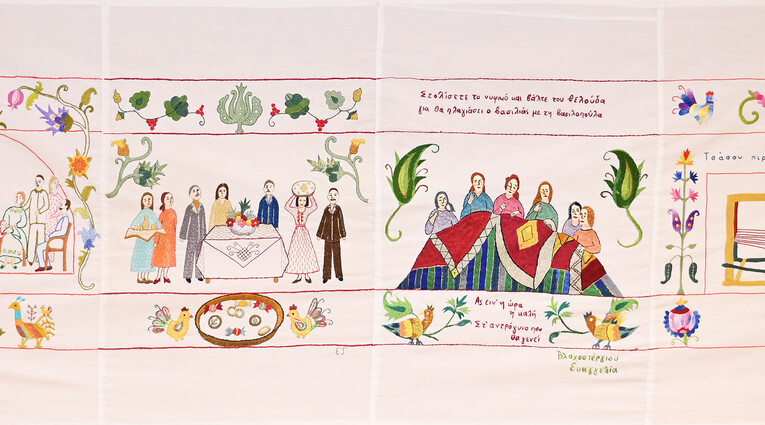 Στολίσετε το νυφικό και βάλτε του βελούδα
για θα πλαγιάσει ο βασιλιάς με τη βασιλοπούλα
Τσάσου πιρ
Ας ειν' η ώρα
η καλή
Στ' αντρόγυνο που
θα γενεί
ΕΣ
Βλαχοστέργιου
Ευαγγελία